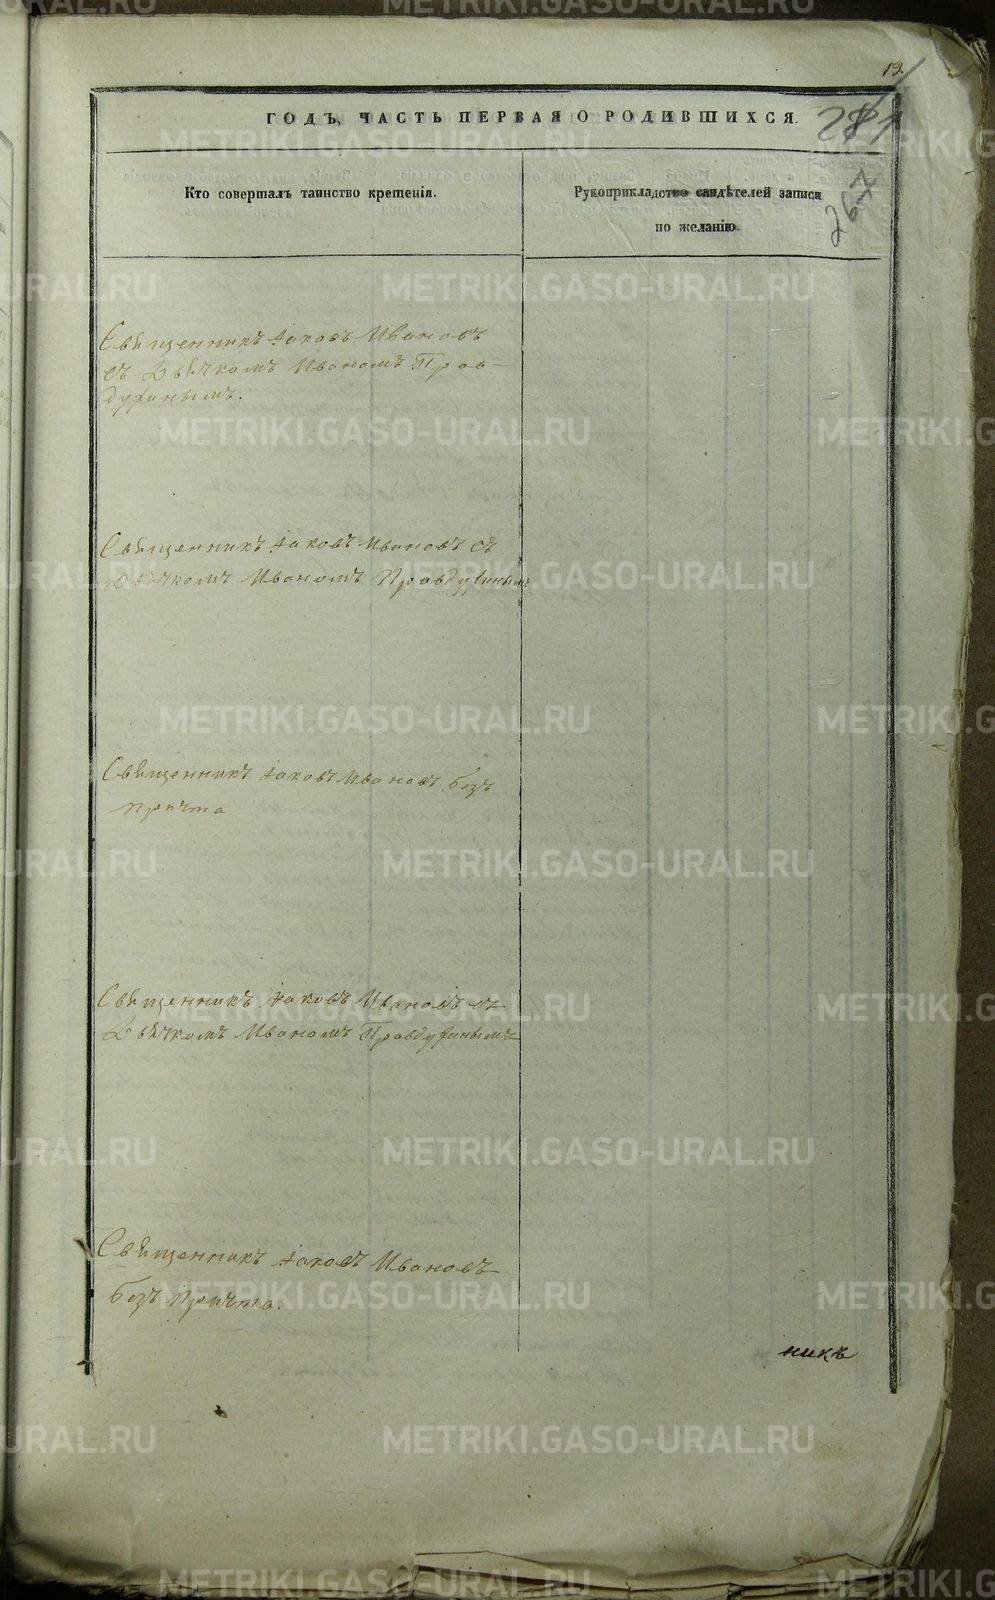 19.
281
267
ГОДЪ, ЧАСТЬ ПЕРВАЯ О РОДИВШИХСЯ.
Кто совершалъ таинство крещенія.
Рукоприкладство свидѣтелей записи
по желанію.
Священникъ Іаковъ Ивановъ
съ Дьячкомъ Иваномъ Прав-
духинымъ.
Священникъ Іаковъ Ивановъ съ
Дьячкомъ Иваномъ Правдухинымъ
Священникъ Іаковъ Ивановъ безъ
причта
Священникъ Іаковъ Ивановъ съ
Дьячкомъ Иваномъ Правдухинымъ
Священникъ Іаковъ Ивановъ
безъ причта.
никъ
METRIKI.GASO-URAL.RU